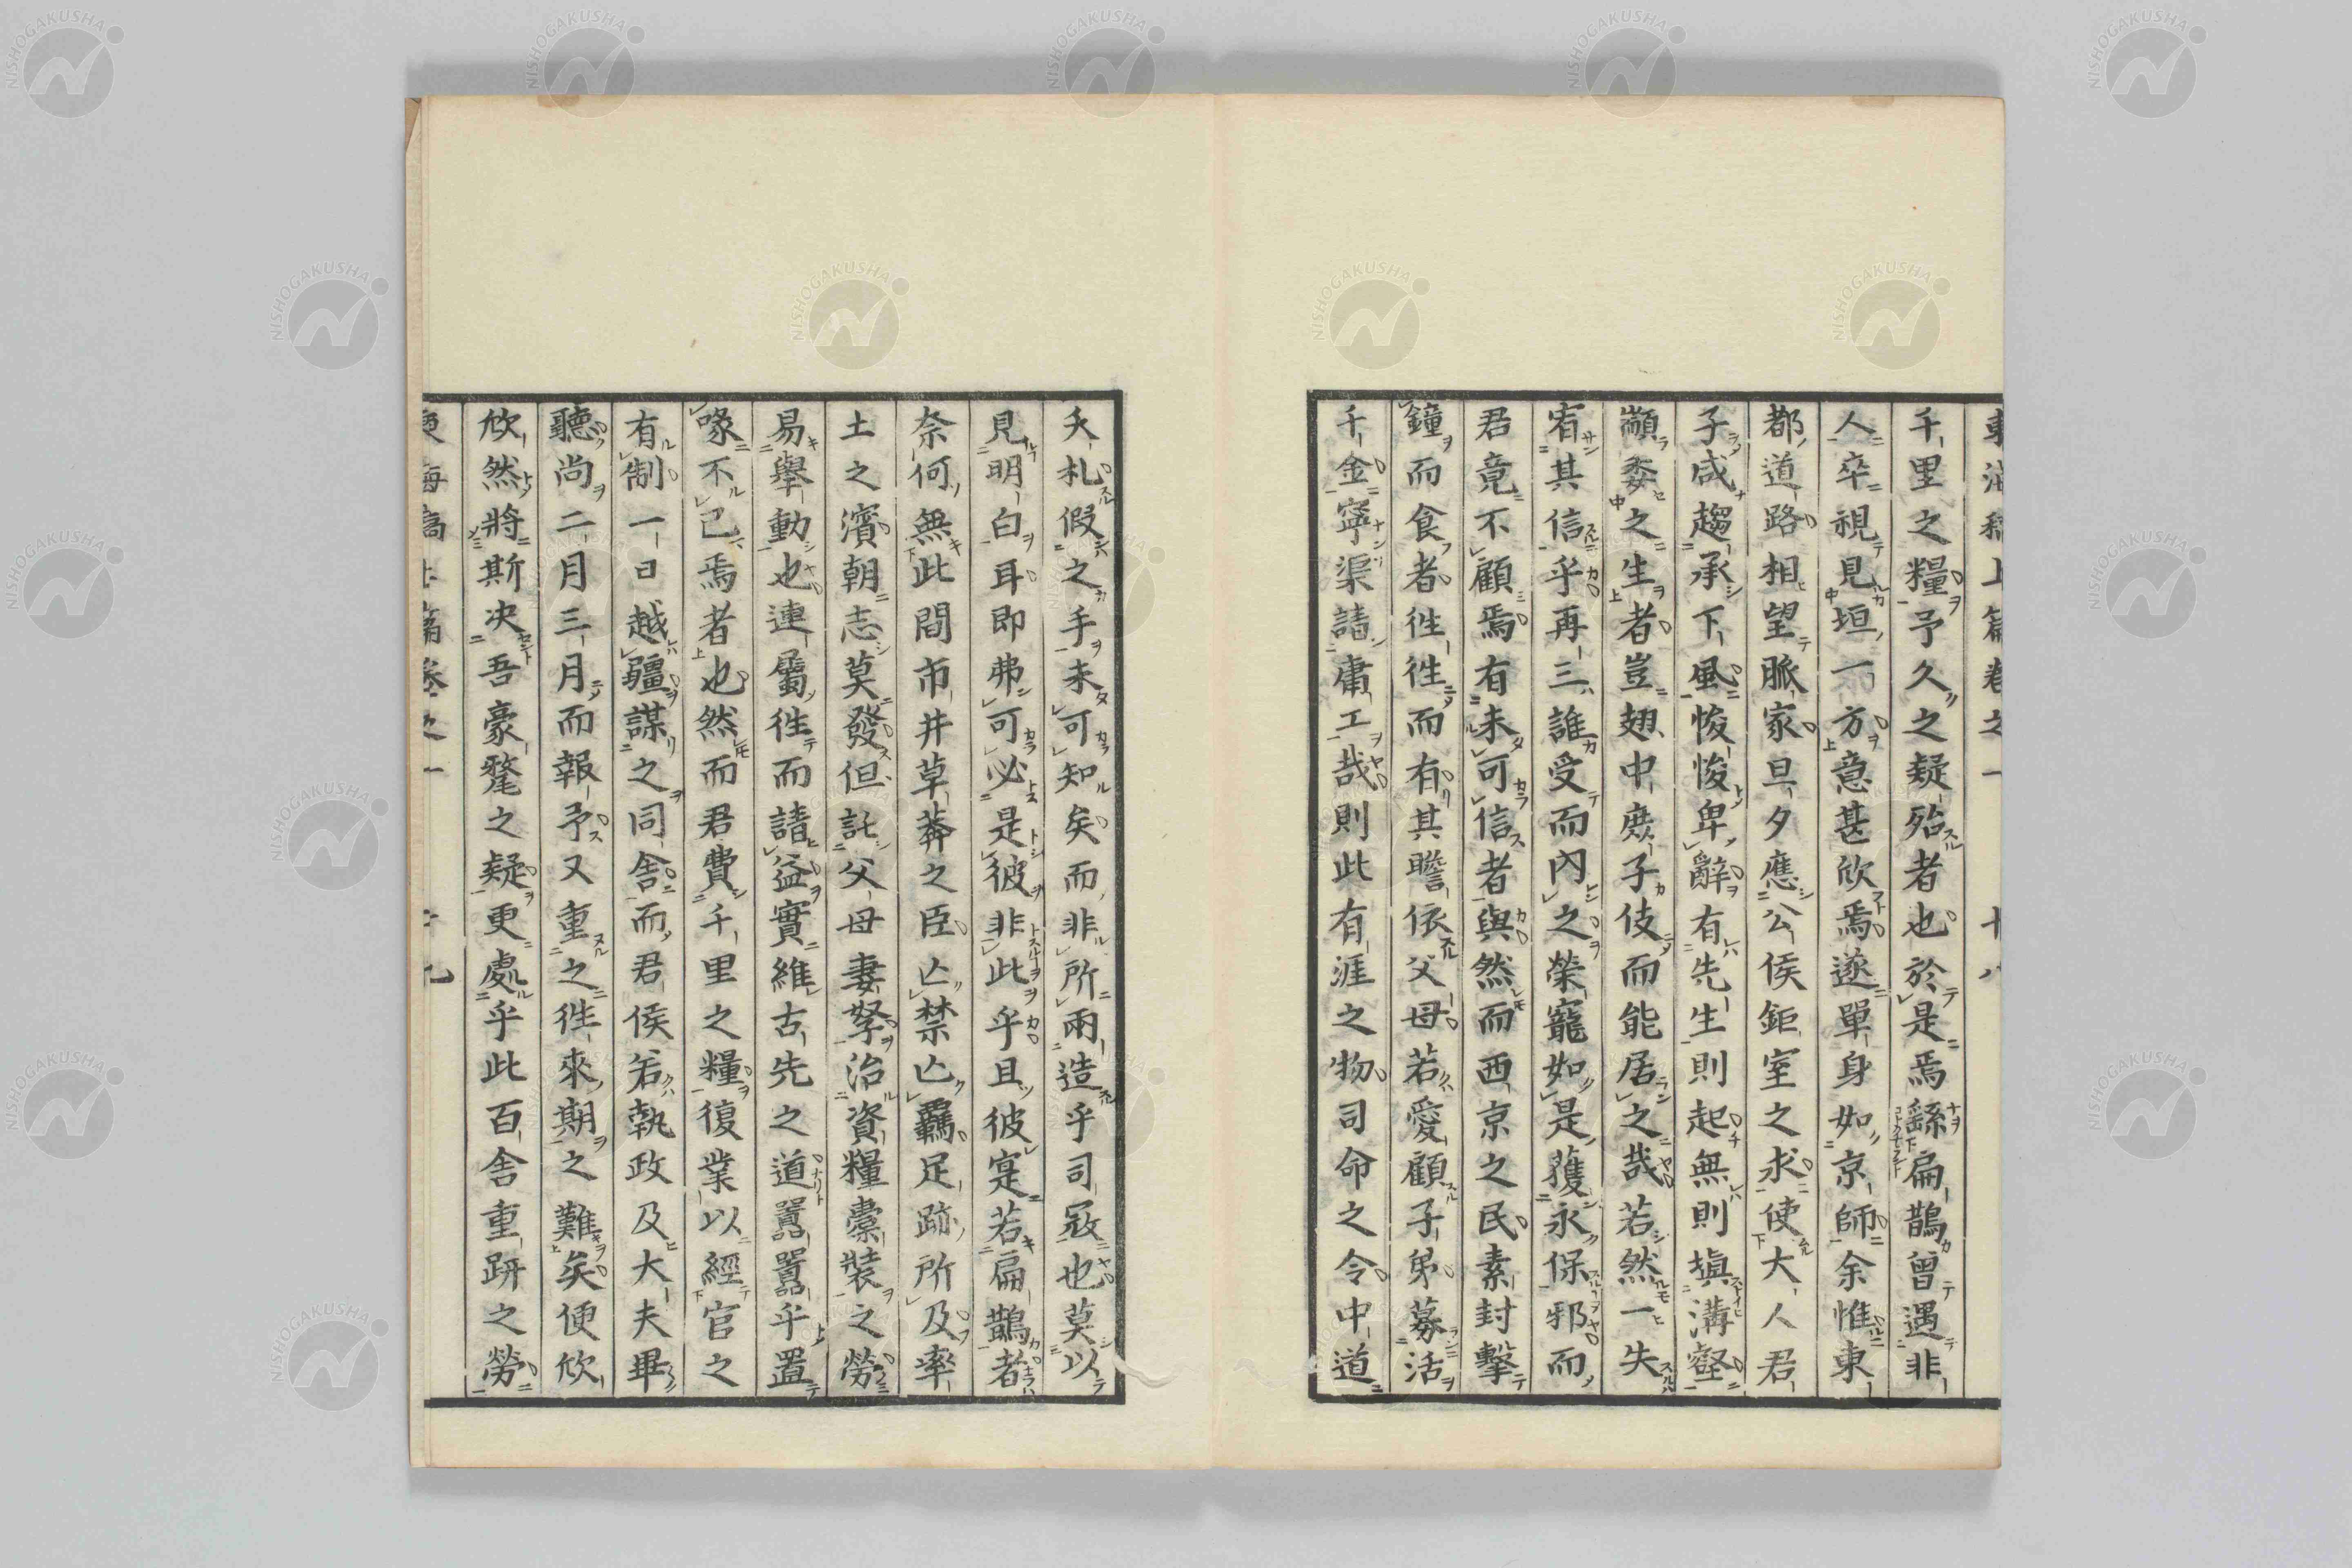 東海稿上篇卷之一 十八
千里之糧予久之疑殆者也於是焉繇扁鵲曾遇非
人卒視見垣一方意甚欣焉遂單身如京師余惟東
都道路相望脈家旦夕應公侯鉅室之求使大人君
子咸趨承下風悛悛卑辭有先生則起無則塡溝壑
顓委之生者豈翅中庶子伎而能居之哉若然一失
宥其信乎再三誰受而內之榮寵如是獲永保邪而
君竟不顧焉有未可信者與然而西京之民素封擊
鐘而食者徃徃而有其瞻依父母若愛顧子弟募活
千金寧渠請庸工哉則此有涯之物司命之令中道
夭札假之手未可知矣而非所兩造乎司寇也莫以
見明白耳即弗可必是彼非此乎且彼寔若扁鵲者
奈何無此間市井草莽之臣亾禁亾羈足跡所及率
土之濱朝志莫發但託父母妻孥治資糧橐裝之勞
易舉動也連屬徃而請益實維古先之道囂囂乎置
喙不已焉者也然而君費千里之糧復業以經官之
有制一日越疆謀之同舍而君侯若執政及大夫畢
聽尚二月三月而報予又重之徃來期之難矣便欣
欣然將斯决吾豪氂之疑更處乎此百舍重趼之勞
東海稿上篇卷之一 十九
NISHOGAKUSHA